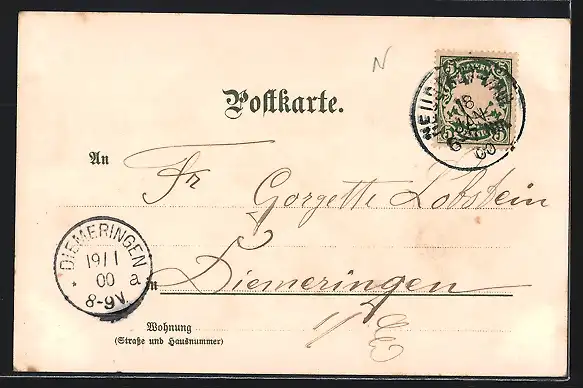 N
BAYERN
18
JAN
00
Postkarte.
An
Fr Gorgette Lobstein
DIEMERINGEN
19/1
00 a
8-9V.
in Diemeringen
Wohnung
(Straße und Hausnummer)
i/E